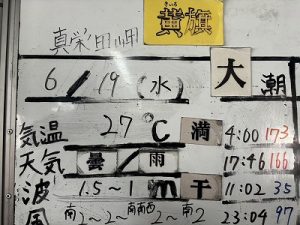 きいろ
黄旗
真栄田岬
6/19(水) 大潮
気温 27℃ 満 4:00 173
天気 曇/雨 17:46 166
波 1.5~1m 干 11:02 35
風 南2~2~南南西2~南2 23:04 97